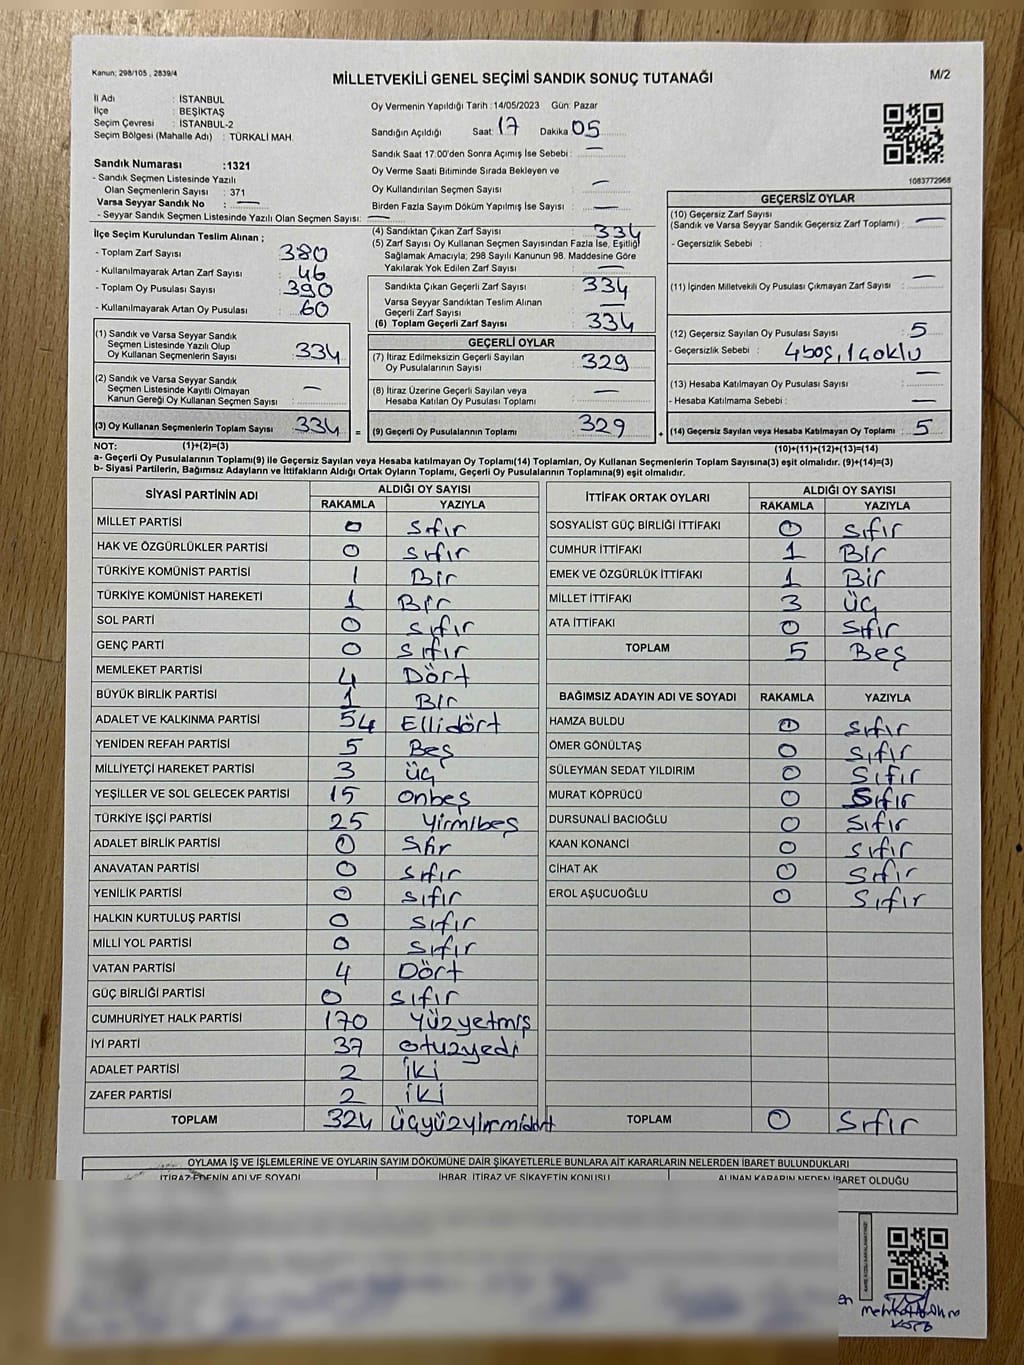 Kanun; 298/105 , 2839/4
MİLLETVEKİLİ GENEL SEÇİMİ SANDIK SONUÇ TUTANAĞI
M/2
İl Adı : İSTANBUL
İlçe : BEŞİKTAŞ
Seçim Çevresi : İSTANBUL-2
Seçim Bölgesi (Mahalle Adı) : TÜRKALİ MAH.
Sandık Numarası :1321
- Sandık Seçmen Listesinde Yazılı
Olan Seçmenlerin Sayısı : 371
Varsa Seyyar Sandık No : —
- Seyyar Sandık Seçmen Listesinde Yazılı Olan Seçmen Sayısı: —
Oy Vermenin Yapıldığı Tarih : 14/05/2023 Gün: Pazar
Sandığın Açıldığı Saat: 17 Dakika 05
Sandık Saat 17:00'den Sonra Açımış İse Sebebi : —
Oy Verme Saati Bitiminde Sırada Bekleyen ve
Oy Kullandırılan Seçmen Sayısı : —
Birden Fazla Sayım Döküm Yapılmış İse Sayısı : —
1083772968
İlçe Seçim Kurulundan Teslim Alınan ;
- Toplam Zarf Sayısı : 380
- Kullanılmayarak Artan Zarf Sayısı : 46
- Toplam Oy Pusulası Sayısı : 390
- Kullanılmayarak Artan Oy Pusulası : 60
(1) Sandık ve Varsa Seyyar Sandık
Seçmen Listesinde Yazılı Olup
Oy Kullanan Seçmenlerin Sayısı : 334
(2) Sandık ve Varsa Seyyar Sandık
Seçmen Listesinde Kayıtlı Olmayan
Kanun Gereği Oy Kullanan Seçmen Sayısı : —
(3) Oy Kullanan Seçmenlerin Toplam Sayısı : 334
(4) Sandıktan Çıkan Zarf Sayısı : 334
(5) Zarf Sayısı Oy Kullanan Seçmen Sayısından Fazla İse, Eşitliği
Sağlamak Amacıyla, 298 Sayılı Kanunun 98. Maddesine Göre
Yakılarak Yok Edilen Zarf Sayısı : —
Sandıkta Çıkan Geçerli Zarf Sayısı : 334
Varsa Seyyar Sandıktan Teslim Alınan
Geçerli Zarf Sayısı : —
(6) Toplam Geçerli Zarf Sayısı : 334
GEÇERLİ OYLAR
(7) İtiraz Edilmeksizin Geçerli Sayılan
Oy Pusulalarının Sayısı : 329
(8) İtiraz Üzerine Geçerli Sayılan veya
Hesaba Katılan Oy Pusulası Toplamı : —
= (9) Geçerli Oy Pusulalarının Toplamı : 329
GEÇERSİZ OYLAR
(10) Geçersiz Zarf Sayısı
(Sandık ve Varsa Seyyar Sandık Geçersiz Zarf Toplamı) : —
- Geçersizlik Sebebi :
(11) İçinden Milletvekili Oy Pusulası Çıkmayan Zarf Sayısı : —
(12) Geçersiz Sayılan Oy Pusulası Sayısı : 5
- Geçersizlik Sebebi : 4 boş, 1 çoklu
(13) Hesaba Katılmayan Oy Pusulası Sayısı : —
- Hesaba Katılmama Sebebi : —
+ (14) Geçersiz Sayılan veya Hesaba Katılmayan Oy Toplamı : 5
NOT: (1)+(2)=(3) (10)+(11)+(12)+(13)=(14)
a- Geçerli Oy Pusulalarının Toplamı(9) ile Geçersiz Sayılan veya Hesaba Katılmayan Oy Toplamı(14) Toplamları, Oy Kullanan Seçmenlerin Toplam Sayısına(3) eşit olmalıdır. (9)+(14)=(3)
b- Siyasi Partilerin, Bağımsız Adayların ve İttifakların Aldığı Ortak Oyların Toplamı, Geçerli Oy Pusulalarının Toplamına(9) eşit olmalıdır.
SİYASİ PARTİNİN ADI ALDIĞI OY SAYISI
RAKAMLA YAZIYLA
MİLLET PARTİSİ 0 Sıfır
HAK VE ÖZGÜRLÜKLER PARTİSİ 0 Sıfır
TÜRKİYE KOMÜNİST PARTİSİ 1 Bir
TÜRKİYE KOMÜNİST HAREKETİ 1 Bir
SOL PARTİ 0 Sıfır
GENÇ PARTİ 0 Sıfır
MEMLEKET PARTİSİ 4 Dört
BÜYÜK BİRLİK PARTİSİ 1 Bir
ADALET VE KALKINMA PARTİSİ 54 Ellidört
YENİDEN REFAH PARTİSİ 5 Beş
MİLLİYETÇİ HAREKET PARTİSİ 3 üç
YEŞİLLER VE SOL GELECEK PARTİSİ 15 onbeş
TÜRKİYE İŞÇİ PARTİSİ 25 Yirmibeş
ADALET BİRLİK PARTİSİ 0 Sıfır
ANAVATAN PARTİSİ 0 Sıfır
YENİLİK PARTİSİ 0 Sıfır
HALKIN KURTULUŞ PARTİSİ 0 Sıfır
MİLLİ YOL PARTİSİ 0 Sıfır
VATAN PARTİSİ 4 Dört
GÜÇ BİRLİĞİ PARTİSİ 0 Sıfır
CUMHURİYET HALK PARTİSİ 170 Yüzyetmiş
İYİ PARTİ 37 otuzyedi
ADALET PARTİSİ 2 iki
ZAFER PARTİSİ 2 iki
TOPLAM 324 üçyüzyirmidört
İTTİFAK ORTAK OYLARI ALDIĞI OY SAYISI
RAKAMLA YAZIYLA
SOSYALİST GÜÇ BİRLİĞİ İTTİFAKI 0 Sıfır
CUMHUR İTTİFAKI 1 Bir
EMEK VE ÖZGÜRLÜK İTTİFAKI 1 Bir
MİLLET İTTİFAKI 3 üç
ATA İTTİFAKI 0 Sıfır
TOPLAM 5 Beş
BAĞIMSIZ ADAYIN ADI VE SOYADI RAKAMLA YAZIYLA
HAMZA BULDU 0 Sıfır
ÖMER GÖNÜLTAŞ 0 Sıfır
SÜLEYMAN SEDAT YILDIRIM 0 Sıfır
MURAT KÖPRÜCÜ 0 Sıfır
DURSUNALİ BACIOĞLU 0 Sıfır
KAAN KONANCİ 0 Sıfır
CİHAT AK 0 Sıfır
EROL AŞUCUOĞLU 0 Sıfır
TOPLAM 0 Sıfır
OYLAMA İŞ VE İŞLEMLERİNE VE OYLARIN SAYIM DÖKÜMÜNE DAİR ŞİKAYETLERLE BUNLARA AİT KARARLARIN NELERDEN İBARET BULUNDUKLARI
İTİRAZ EDENİN ADI VE SOYADI İHBAR, İTİRAZ VE ŞİKAYETİN KONUSU ALINAN KARARIN NEDEN İBARET OLDUĞU